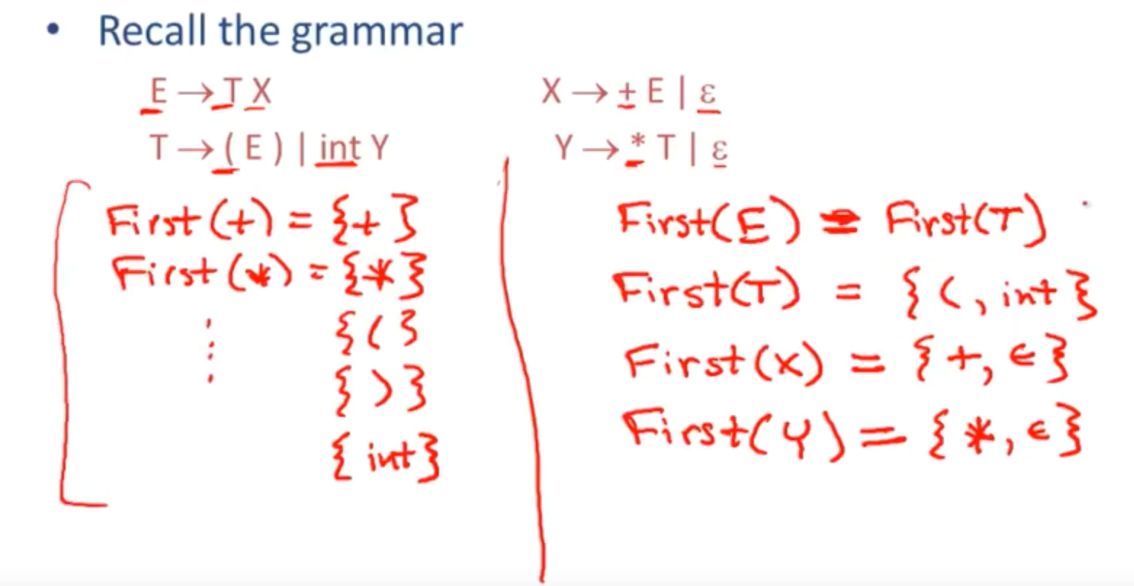 • Recall the grammar
E → T X
X → + E | ε
T → ( E ) | int Y
Y → * T | ε
First(+) = {+}
First(*) = {*}
⋮ {(}
{)}
{int}
First(E) = First(T)
First(T) = {(, int}
First(X) = {+, ϵ}
First(Y) = {*, ϵ}